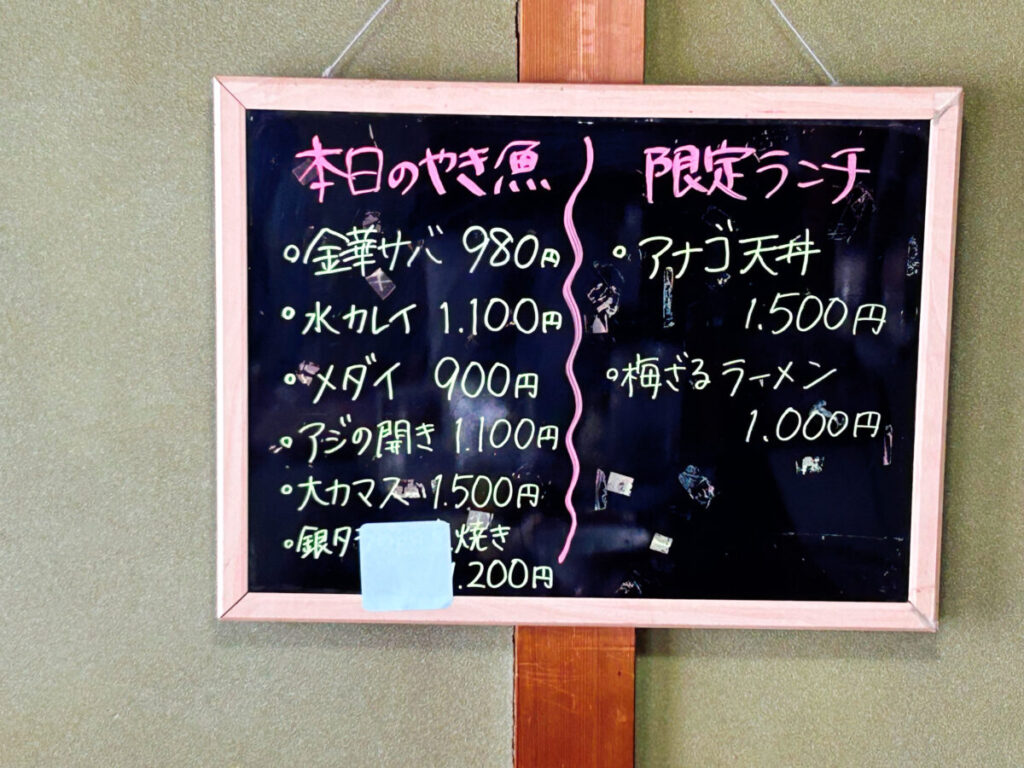 本日のやき魚
・金華サバ 980円
・水カレイ 1.100円
・メダイ 900円
・アジの開き 1.100円
・大カマス 1.500円
・銀タ 焼き
.200円
限定ランチ
・アナゴ天丼
1.500円
・梅ざるラーメン
1.000円